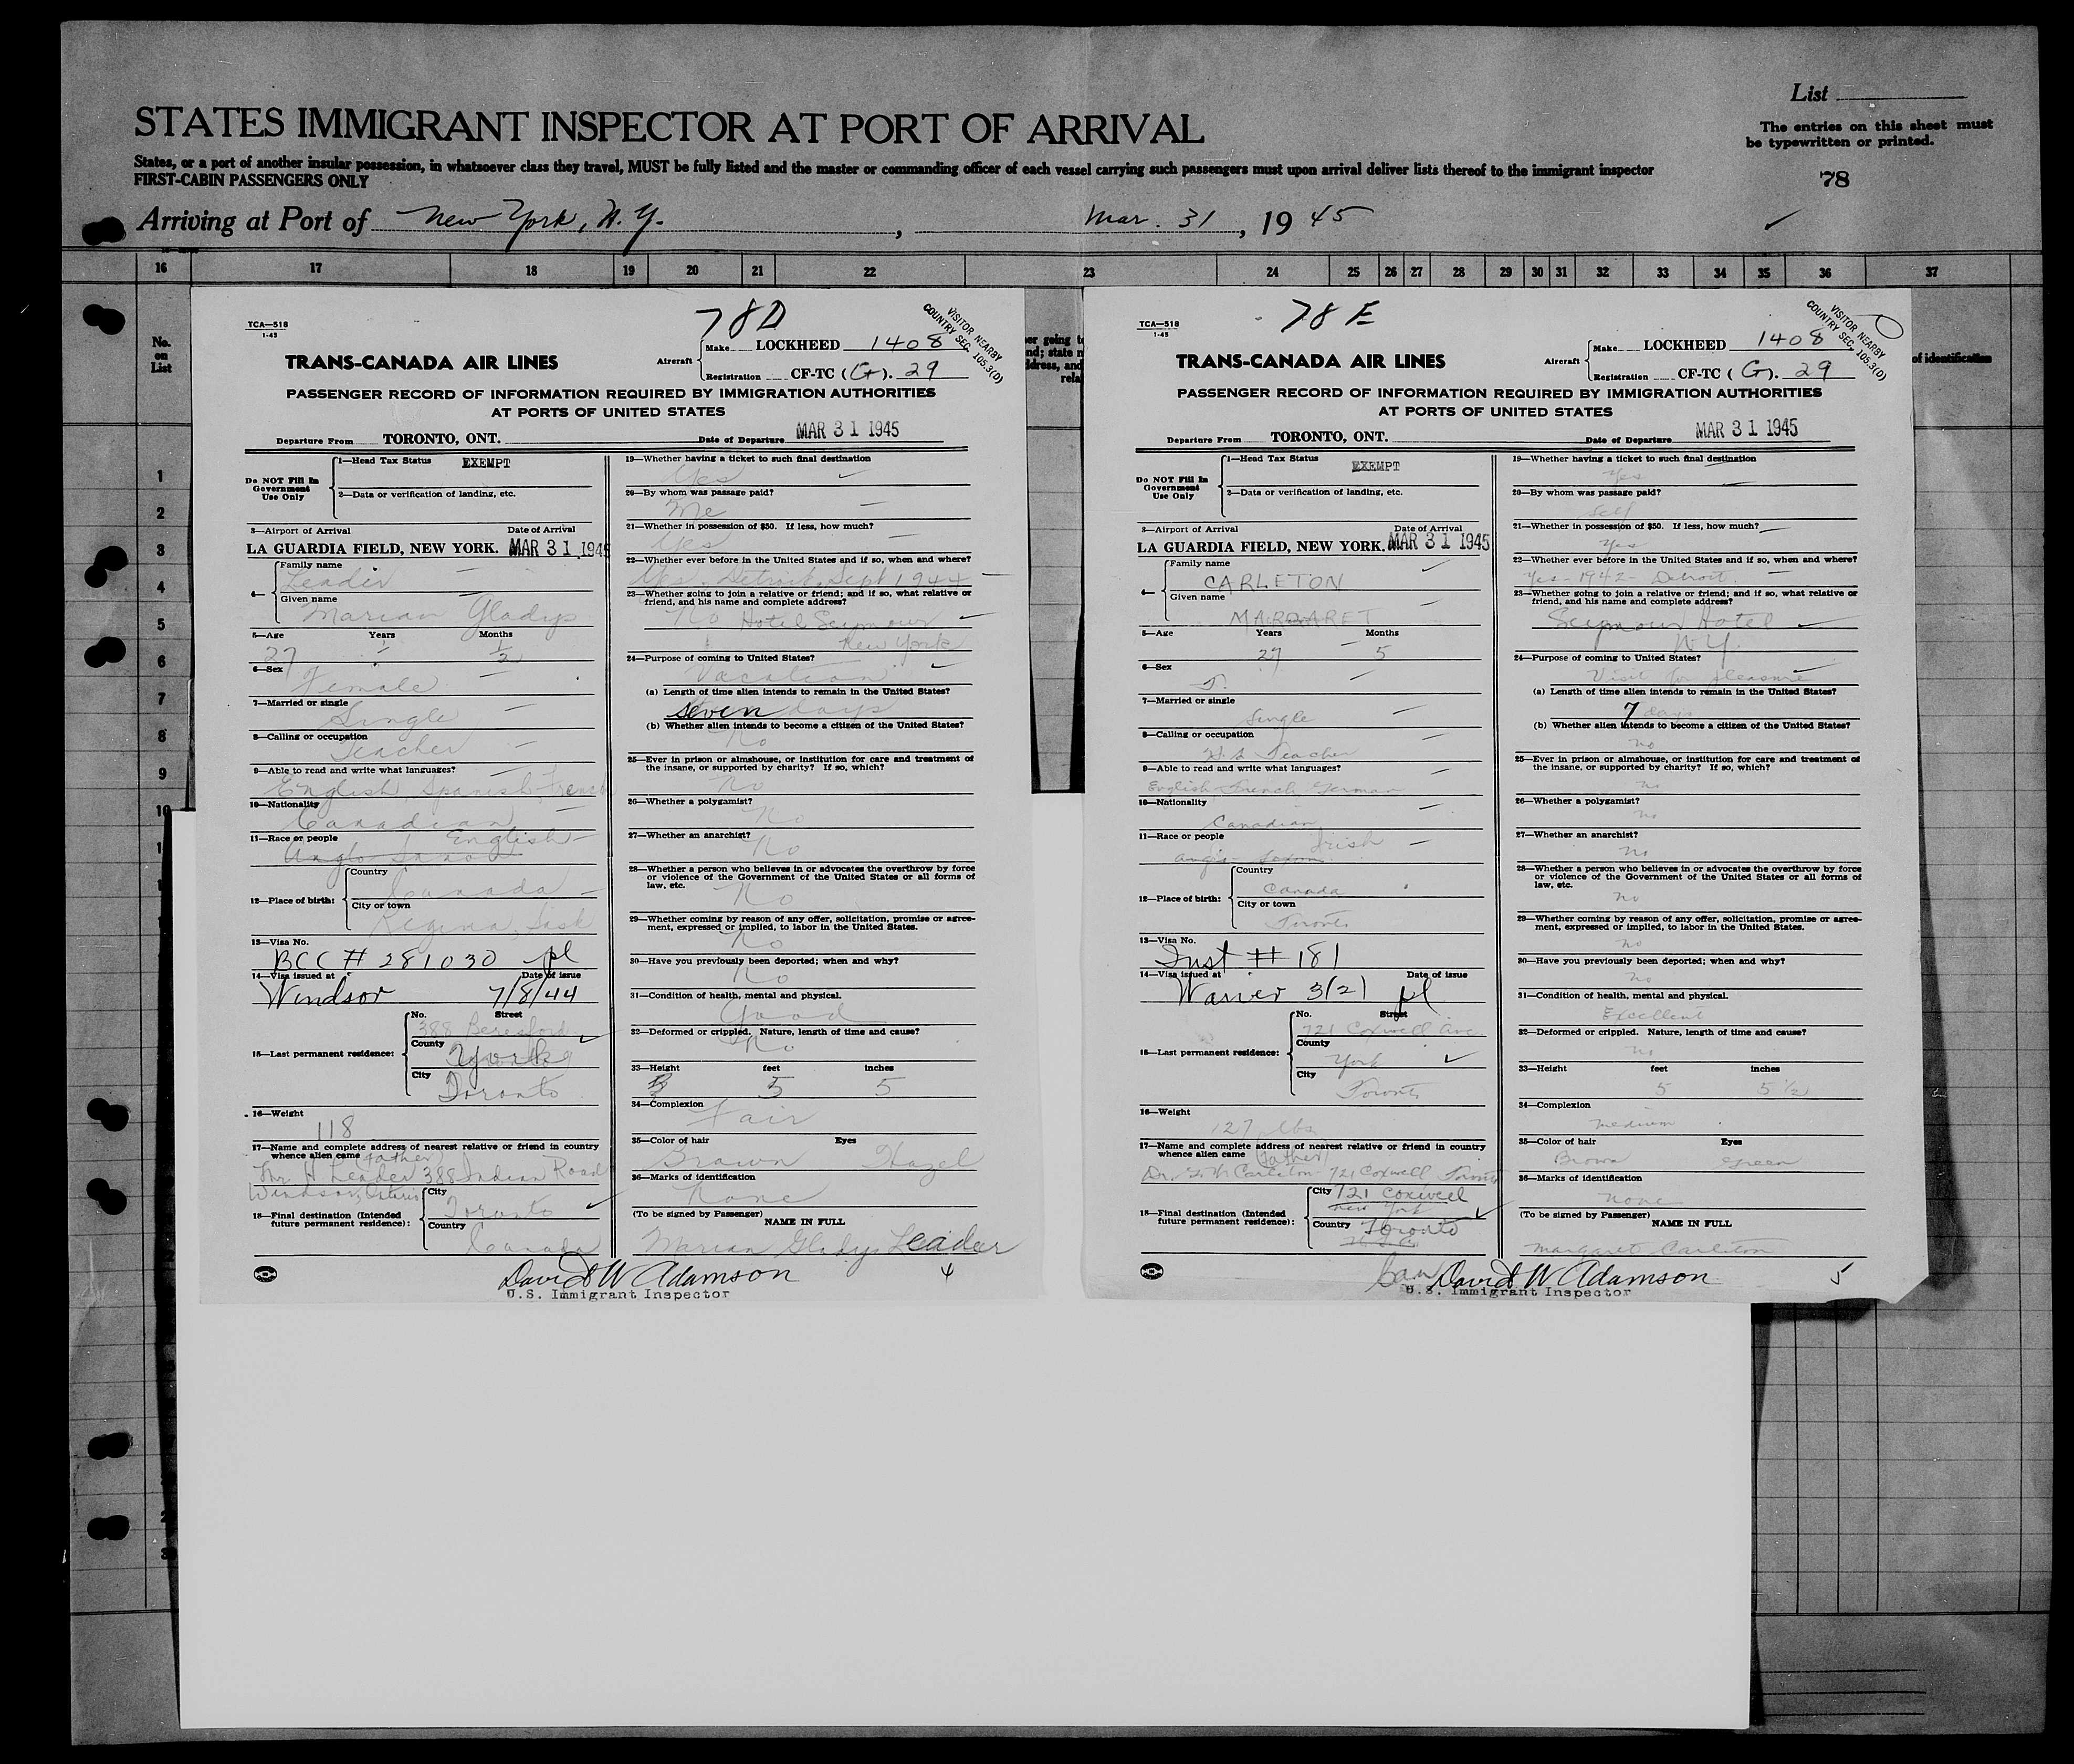 List
STATES IMMIGRANT INSPECTOR AT PORT OF ARRIVAL
The entries on this sheet must
be typewritten or printed.
States, or a port of another insular possession, in whatsoever class they travel, MUST be fully listed and the master or commanding officer of each vessel carrying such passengers must upon arrival deliver lists thereof to the immigrant inspector
FIRST-CABIN PASSENGERS ONLY
78
Arriving at Port of New York, N.Y., Mar. 31, 1945
16 17 18 19 20 21 22 23 24 25 26 27 28 29 30 31 32 33 34 35 36 37
No.
on
List
of identification
1
2
3
4
5
6
7
8
9
10
78D
VISITOR NEARBY
COUNTRY SEC. 105.3(D)
TCA—518
1-45
TRANS-CANADA AIR LINES
Aircraft
Make LOCKHEED 1408
Registration CF-TC (G). 29
PASSENGER RECORD OF INFORMATION REQUIRED BY IMMIGRATION AUTHORITIES
AT PORTS OF UNITED STATES
Departure From TORONTO, ONT. Date of Departure MAR 31 1945
Do NOT Fill In
Government
Use Only
1—Head Tax Status EXEMPT
2—Data or verification of landing, etc.
3—Airport of Arrival Date of Arrival
LA GUARDIA FIELD, NEW YORK. MAR 31 1945
4—
Family name
Leader
Given name
Marian Gladys
5—Age Years Months
27 ½
6—Sex
Female
7—Married or single
Single
8—Calling or occupation
Teacher
9—Able to read and write what languages?
English, Spanish, French
10—Nationality
Canadian
11—Race or people English
Anglo Saxon
12—Place of birth:
Country
Canada
City or town
Regina, Sask
13—Visa No.
BCC # 281030 pl
14—Visa issued at Date of issue
Windsor 7/8/44
15—Last permanent residence:
No. Street
388 Beresford
County
York
City
Toronto
16—Weight
118
17—Name and complete address of nearest relative or friend in country
whence alien came father
Mr. H. Leader 388 Indian Road
Windsor, Ontario
18—Final destination (Intended
future permanent residence):
City
Toronto
Country
Canada
19—Whether having a ticket to such final destination
Yes
20—By whom was passage paid?
Me
21—Whether in possession of $50. If less, how much?
Yes
22—Whether ever before in the United States and if so, when and where?
Yes, Detroit, Sept 1944
23—Whether going to join a relative or friend; and if so, what relative or
friend, and his name and complete address?
No Hotel Seymour
New York
24—Purpose of coming to United States?
Vacation
(a) Length of time alien intends to remain in the United States?
seven days
(b) Whether alien intends to become a citizen of the United States?
No
25—Ever in prison or almshouse, or institution for care and treatment of
the insane, or supported by charity? If so, which?
No
26—Whether a polygamist?
No
27—Whether an anarchist?
No
28—Whether a person who believes in or advocates the overthrow by force
or violence of the Government of the United States or all forms of
law, etc.
No
29—Whether coming by reason of any offer, solicitation, promise or agree-
ment, expressed or implied, to labor in the United States.
No
30—Have you previously been deported; when and why?
No
31—Condition of health, mental and physical.
Good
32—Deformed or crippled. Nature, length of time and cause?
No
33—Height feet inches
5 5
34—Complexion
Fair
35—Color of hair Eyes
Brown Hazel
36—Marks of identification
None
(To be signed by Passenger)
NAME IN FULL
Marian Gladys Leader
David W Adamson 4
U.S. Immigrant Inspector
78E
VISITOR NEARBY
COUNTRY SEC. 105.3(D)
TCA—518
1-45
TRANS-CANADA AIR LINES
Aircraft
Make LOCKHEED 1408
Registration CF-TC (G). 29
PASSENGER RECORD OF INFORMATION REQUIRED BY IMMIGRATION AUTHORITIES
AT PORTS OF UNITED STATES
Departure From TORONTO, ONT. Date of Departure MAR 31 1945
Do NOT Fill In
Government
Use Only
1—Head Tax Status EXEMPT
2—Data or verification of landing, etc.
3—Airport of Arrival Date of Arrival
LA GUARDIA FIELD, NEW YORK. MAR 31 1945
4—
Family name
CARLETON
Given name
MARGARET
5—Age Years Months
27 5
6—Sex
F.
7—Married or single
Single
8—Calling or occupation
H.S. Teacher
9—Able to read and write what languages?
English French German
10—Nationality
Canadian
11—Race or people Irish
Anglo-Saxon
12—Place of birth:
Country
Canada
City or town
Toronto
13—Visa No.
Inst # 181
14—Visa issued at Date of issue
3/21 pl
15—Last permanent residence:
No. Street
721 Coxwell Ave.
County
York
City
Toronto
16—Weight
127 lbs
17—Name and complete address of nearest relative or friend in country
whence alien came (father)
Dr. Carleton 721 Coxwell Toronto
18—Final destination (Intended
future permanent residence):
City 721 Coxwell
New York
Country Toronto
19—Whether having a ticket to such final destination
Yes
20—By whom was passage paid?
Self
21—Whether in possession of $50. If less, how much?
Yes
22—Whether ever before in the United States and if so, when and where?
Yes - 1942 - Detroit
23—Whether going to join a relative or friend; and if so, what relative or
friend, and his name and complete address?
Seymour Hotel
N.Y.
24—Purpose of coming to United States?
Visit for pleasure
(a) Length of time alien intends to remain in the United States?
7 days
(b) Whether alien intends to become a citizen of the United States?
no
25—Ever in prison or almshouse, or institution for care and treatment of
the insane, or supported by charity? If so, which?
no
26—Whether a polygamist?
no
27—Whether an anarchist?
no
28—Whether a person who believes in or advocates the overthrow by force
or violence of the Government of the United States or all forms of
law, etc.
no
29—Whether coming by reason of any offer, solicitation, promise or agree-
ment, expressed or implied, to labor in the United States.
no
30—Have you previously been deported; when and why?
no
31—Condition of health, mental and physical.
Excellent
32—Deformed or crippled. Nature, length of time and cause?
no
33—Height feet inches
5 5 ½
34—Complexion
medium
35—Color of hair Eyes
Brown green
36—Marks of identification
none
(To be signed by Passenger)
NAME IN FULL
Margaret Carleton
Can David W Adamson 5
U.S. Immigrant Inspector